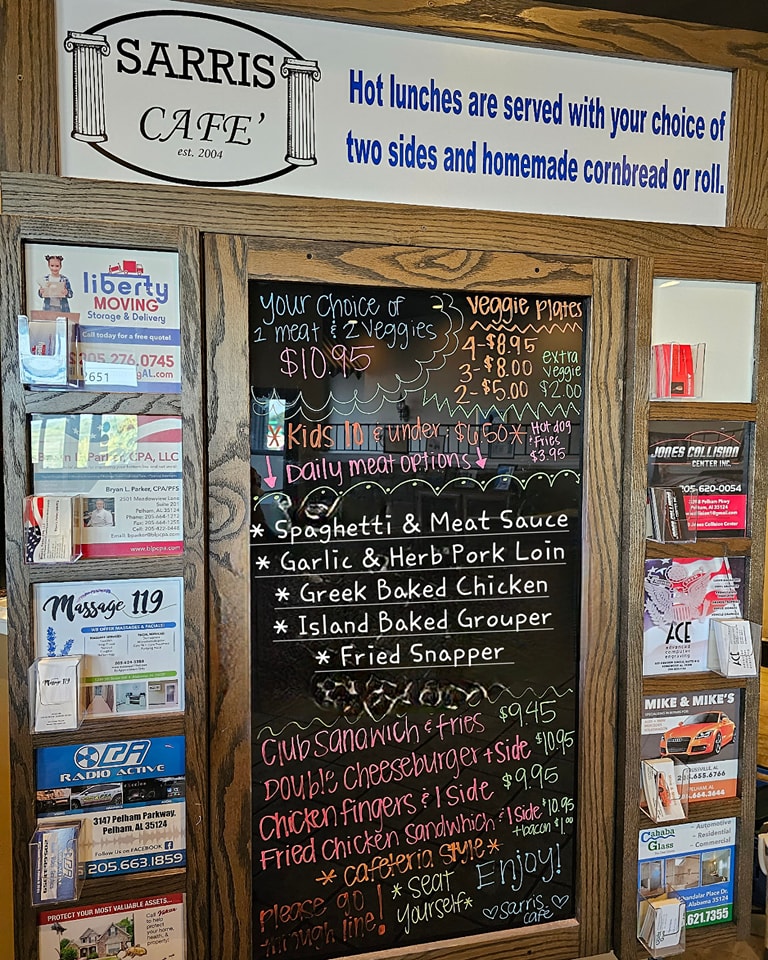 SARRIS
CAFE'
est. 2004
Hot lunches are served with your choice of
two sides and homemade cornbread or roll.
liberty
MOVING
Storage & Delivery
Call today for a free quote!
205.276.0745
2651
Parker, CPA, LLC
Bryan L. Parker, CPA/PFS
2501 Meadowview Lane
Suite 201
Pelham, AL 35124
www.blpcpa.com
Massage 119
WE OFFER MASSAGES & FACIALS!
Massage 119
RADIO ACTIVE
3147 Pelham Parkway,
Pelham, AL 35124
Follow Us on FACEBOOK
205.663.1859
PROTECT YOUR MOST VALUABLE ASSETS...
to help
protect
your home,
health, &
property!
your choice of
1 meat & 2 veggies
$10.95
Veggie Plates
4-$8.95
3-$8.00
2-$5.00
extra
veggie
$2.00
*Kids 10 & under $6.50*
Hot dog
& fries
$3.95
Daily meat options
* Spaghetti & Meat Sauce
* Garlic & Herb Pork Loin
* Greek Baked Chicken
* Island Baked Grouper
* Fried Snapper
Club Sandwich & fries $9.45
Double Cheeseburger + side $10.95
Chicken fingers & 1 Side $9.95
Fried Chicken Sandwhich & 1 side $10.95
+bacon $1.00
* cafeteria style *
Please go
through line!
*seat
yourself*
Enjoy!
sarris
cafe
JONES COLLISION
CENTER INC.
205-620-0054
Jones Collision Center
ACE
advanced
computer
engraving
ACE
MIKE & MIKE'S
205.655.6766
Cahaba
Glass
Automotive
Residential
Commercial
Chandalar Place Dr.
Alabama 35124
.621.7355